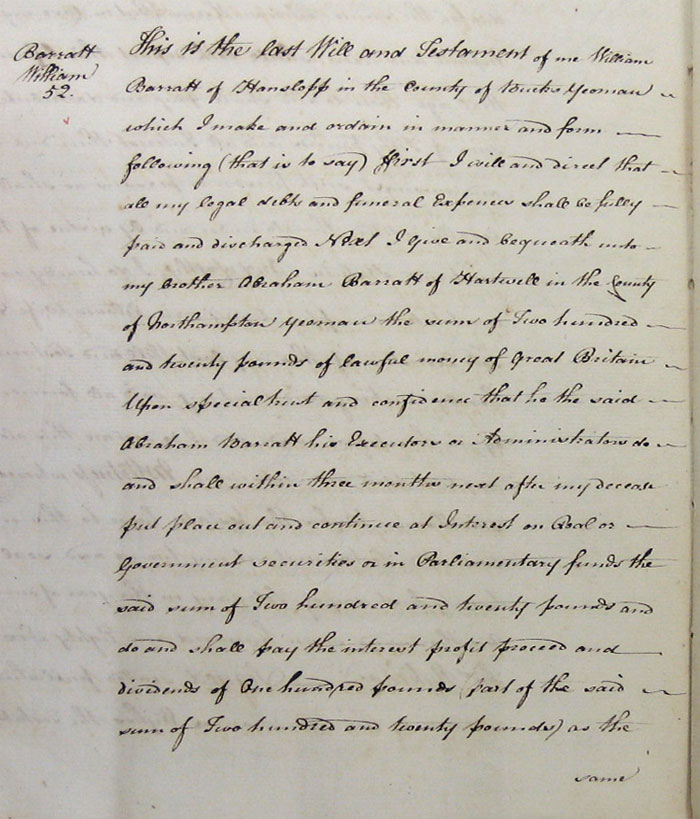 Barratt
William
52.
This is the last Will and Testament of me William
Barratt of Hanslopp in the County of Bucks Yeoman
which I make and ordain in manner and form
following (that is to say) ffirst I will and direct that
all my legal debts and funeral Expences shall be fully
paid and discharged Next I Give and bequeath unto
my brother Abraham Barratt of Hartwell in the County
of Northampton Yeoman the sum of Two hundred
and twenty pounds of lawful money of Great Britain
Upon special trust and confidence that he the said
Abraham Barratt his Executors or Administrators do
and shall within three months next after my decease
put place out and continue at Interest on Real or
Government securities or in Parliamentary funds the
said sum of Two hundred and twenty pounds and
do and shall pay the interest profit proceed and
dividends of One hundred pounds (part of the said
sum of Two hundred and twenty pounds) as the
same